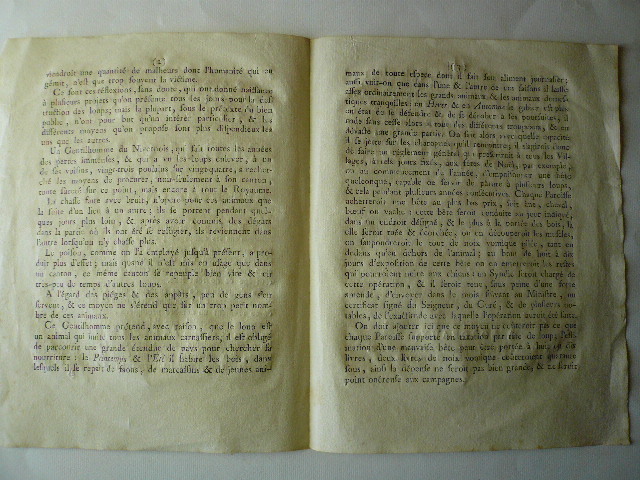 (2)
viendroit une quantité de malheurs dont l'humanité qui en
gémit, n'est que trop souvent la victime.
Ce sont ces réflexions, sans doute, qui ont donné naissance
à plusieurs projets qu'on présente tous les jours pour la des-
truction des loups; mais la plupart, sous le prétexte du bien
public, n'ont pour but qu'un intérêt particulier, & les
différens moyens qu'on propose sont plus dispendieux les
uns que les autres.
Un Gentilhomme du Nivernois, qui fait toutes les années
des pertes immenses, & qui a vu les loups enlever, à un
de ses voisins, vingt-trois poulains sur vingt-quatre, a cher-
ché les moyens de procurer, non-seulement à son canton,
toute sûreté sur ce point, mais encore à tout le Royaume.
La chasse faite avec bruit, n'opère pour ces animaux que
la fuite d'un lieu à un autre; ils se portent pendant quel-
ques jours plus loin, & après avoir commis des dégâts
dans la partie où ils ont été se réfugier, ils reviennent dans
l'autre lorsqu'on n'y chasse plus.
Le poison, comme on l'a employé jusqu'à présent, a pro-
duit plus d'effet; mais quand il n'a été mis en usage que dans
un canton, ce même canton se repeuple bien vite & en
très-peu de temps d'autres loups.
A l'égard des pièges & des appâts, peu de gens s'en
servent, & ce moyen ne s'étend que sur un trop petit nom-
bre de ces animaux.
Ce Gentilhomme prétend, avec raison, que le loup est
un animal qui suit tous les animaux carnassiers, il est obligé
de parcourir une grande étendue de pays pour chercher sa
nourriture : le Printemps & l'Eté il habite les bois, dans
lesquels il se repaît de faons, de marcassins & de jeunes ani-
maux de toute espèce dont il fait son aliment journalier;
aussi voit-on que dans l'une & l'autre de ces saisons il laisse
assez ordinairement les grands animaux & les animaux domes-
tiques tranquilles: en Hiver & en Automne le gibier est plus
à tels jours fixes, aux fêtes de Noël, par exemple,
ou au commencement de l'année, d'empoisonner une bête
quelconque, capable de servir de pâture à plusieurs loups,
& cela pendant plusieurs années consécutives. Chaque Paroisse
acheteroit une bête au plus bas prix, soit âne, cheval,
bœuf ou vache : cette bête seroit conduite au jour indiqué,
dans un endroit désigné, & le plus à la portée des bois, là
elle seroit tuée & écorchée, on en découperoit les muscles,
on saupoudreroit le tout de noix vomique pilée, tant en
dedans qu'en dehors de l'animal; au bout de huit à dix
jours d'exposition de cette bête on en enterreroit les restes
qui pourroient nuire aux chiens : un Syndic seroit chargé de
cette opération, & il seroit tenu, sous peine d'une forte
amende, d'envoyer dans le mois suivant au Ministre, un
certificat signé du Seigneur, du Curé, & de plusieurs no-
tables, de l'exactitude avec laquelle l'opération auroit été faite.
On doit ajouter ici que ce moyen ne coûteroit pas ce que
livres, deux livres de noix vomique coûteroient quarante
sous, ainsi la dépense ne seroit pas bien grande, & ne seroit
point onéreuse aux campagnes.